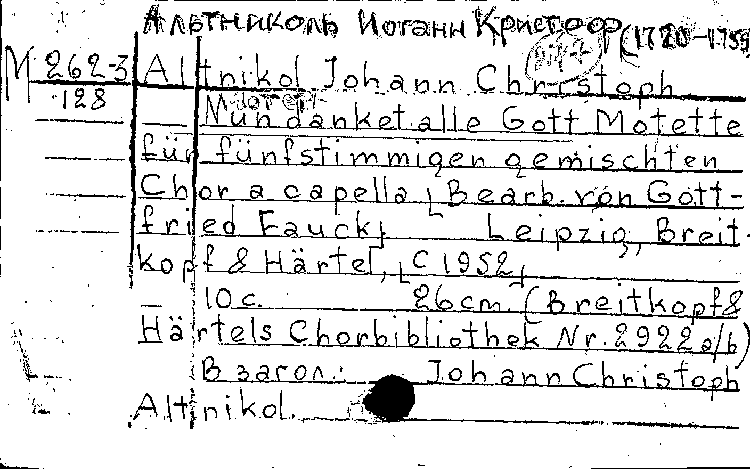 Альтниколь Иоганн Кристоф
(1720-1759
M 262-3 Altnikol Johann Christoph
128
Nun danket alle Gott Motette
für fünfstimmigen gemischten
Chor a capella [Bearb. von Gott-
fried Fauck] Leipzig, Breit-
kopf & Härtel, [C 1952]
10 с. 26 cm. (Breitkopf &
Härtels Chorbibliothek Nr. 2922 a/b)
В загол.: Johann Christoph
Altnikol.